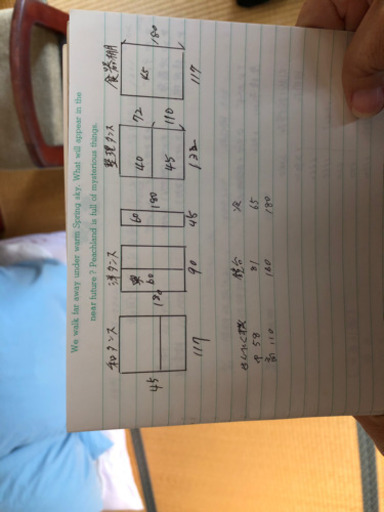 We walk far away under warm Spring sky. What will appear in the
near future? Peachland is full of mysterious things.
和タンス
45
117
洋タンス
奥60
180
90
60
180
45
整理タンス
72
40
110
45
122
食器棚
180
45
117
巾 58
高 110
鏡台
81
160
65
180